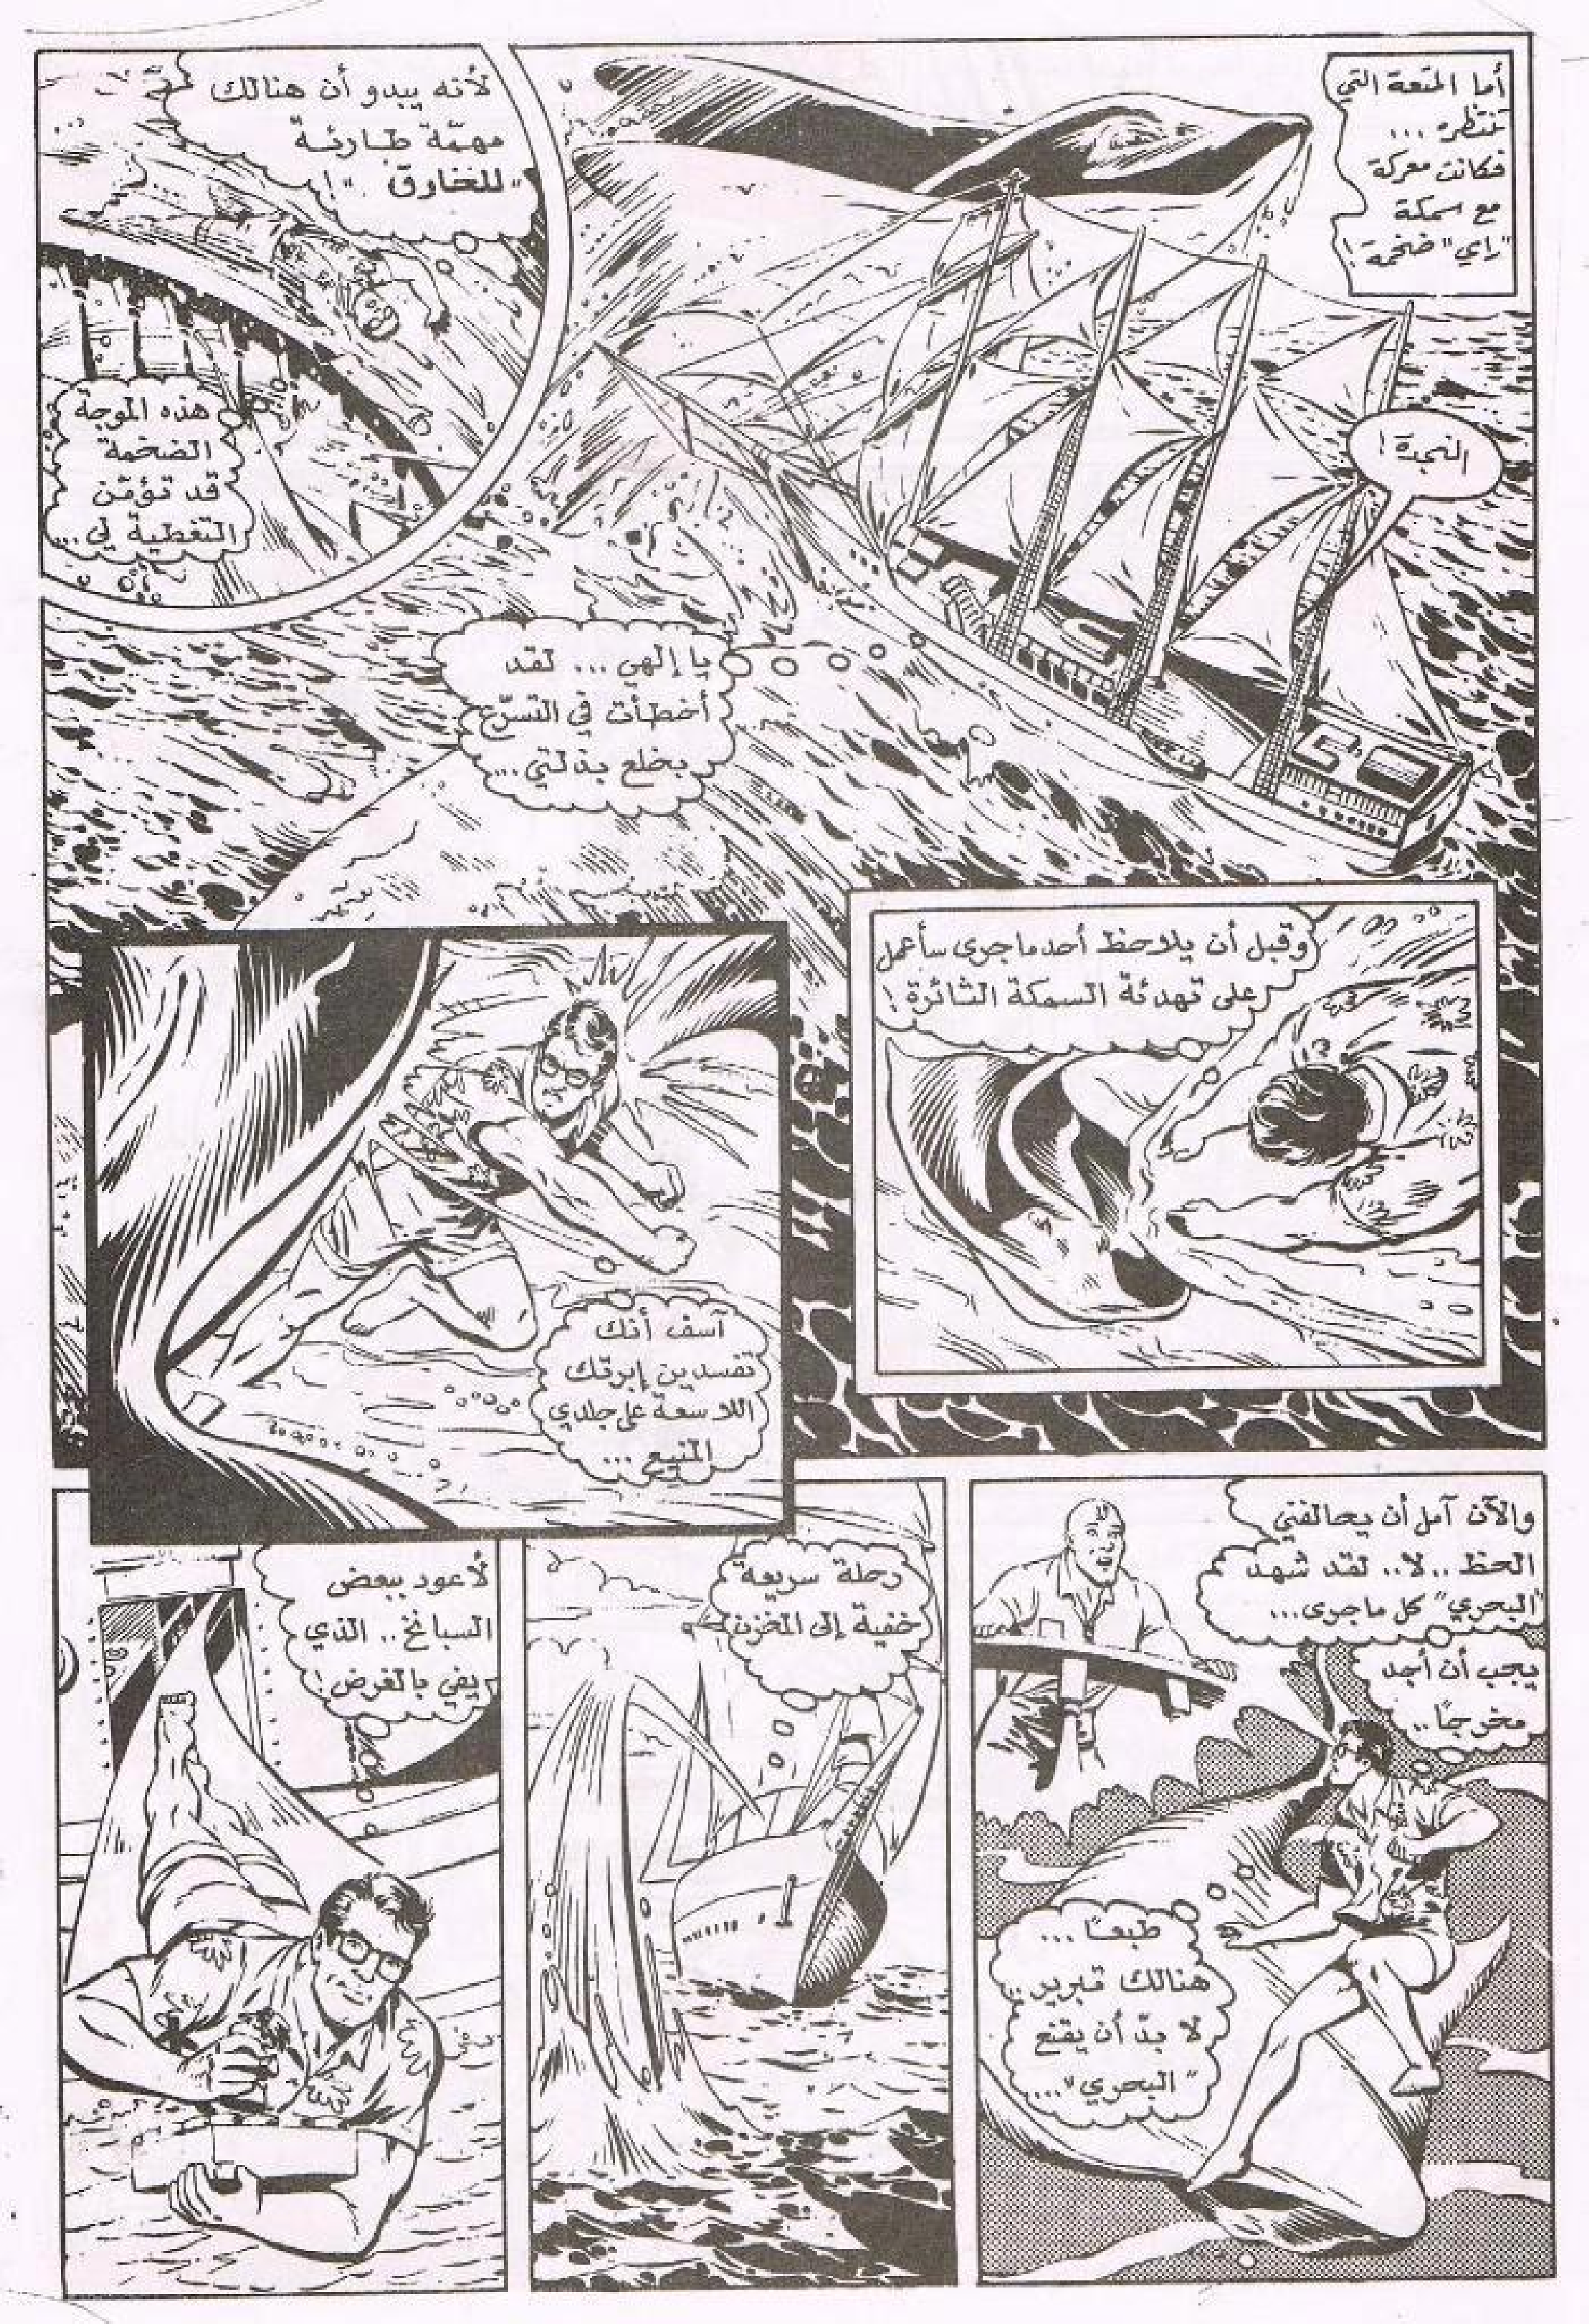 أما المتعة التي
تنتظره ...
فكانت معركة
مع سمكة
"راي" ضخمة!
النجدة!
يا إلهي ... لقد
أخطأت في التسرّع
بخلع بذلتي ...
لأنه يبدو أن هنالك
مهمّة طارئة
"للخارق"!
هذه الموجة
الضخمة
قد تؤمّن
التغطية لي ...
وقبل أن يلاحظ أحد ما جرى سأعمل
على تهدئة السمكة الثائرة!
آسف أنك
تفسدين إبرتك
اللاسعة على جلدي
المنيع ...
والآن آمل أن يحالفني
الحظ .. لا .. لقد شهد
"البحري" كل ما جرى ...
يجب أن أجد
مخرجًا ..
طبعًا ...
هنالك تبرير ..
لا بدّ أن يقنع
"البحري" ....
رحلة سريعة
خفية إلى المخزن
لأعود ببعض
السبانخ .. الذي
يفي بالغرض!